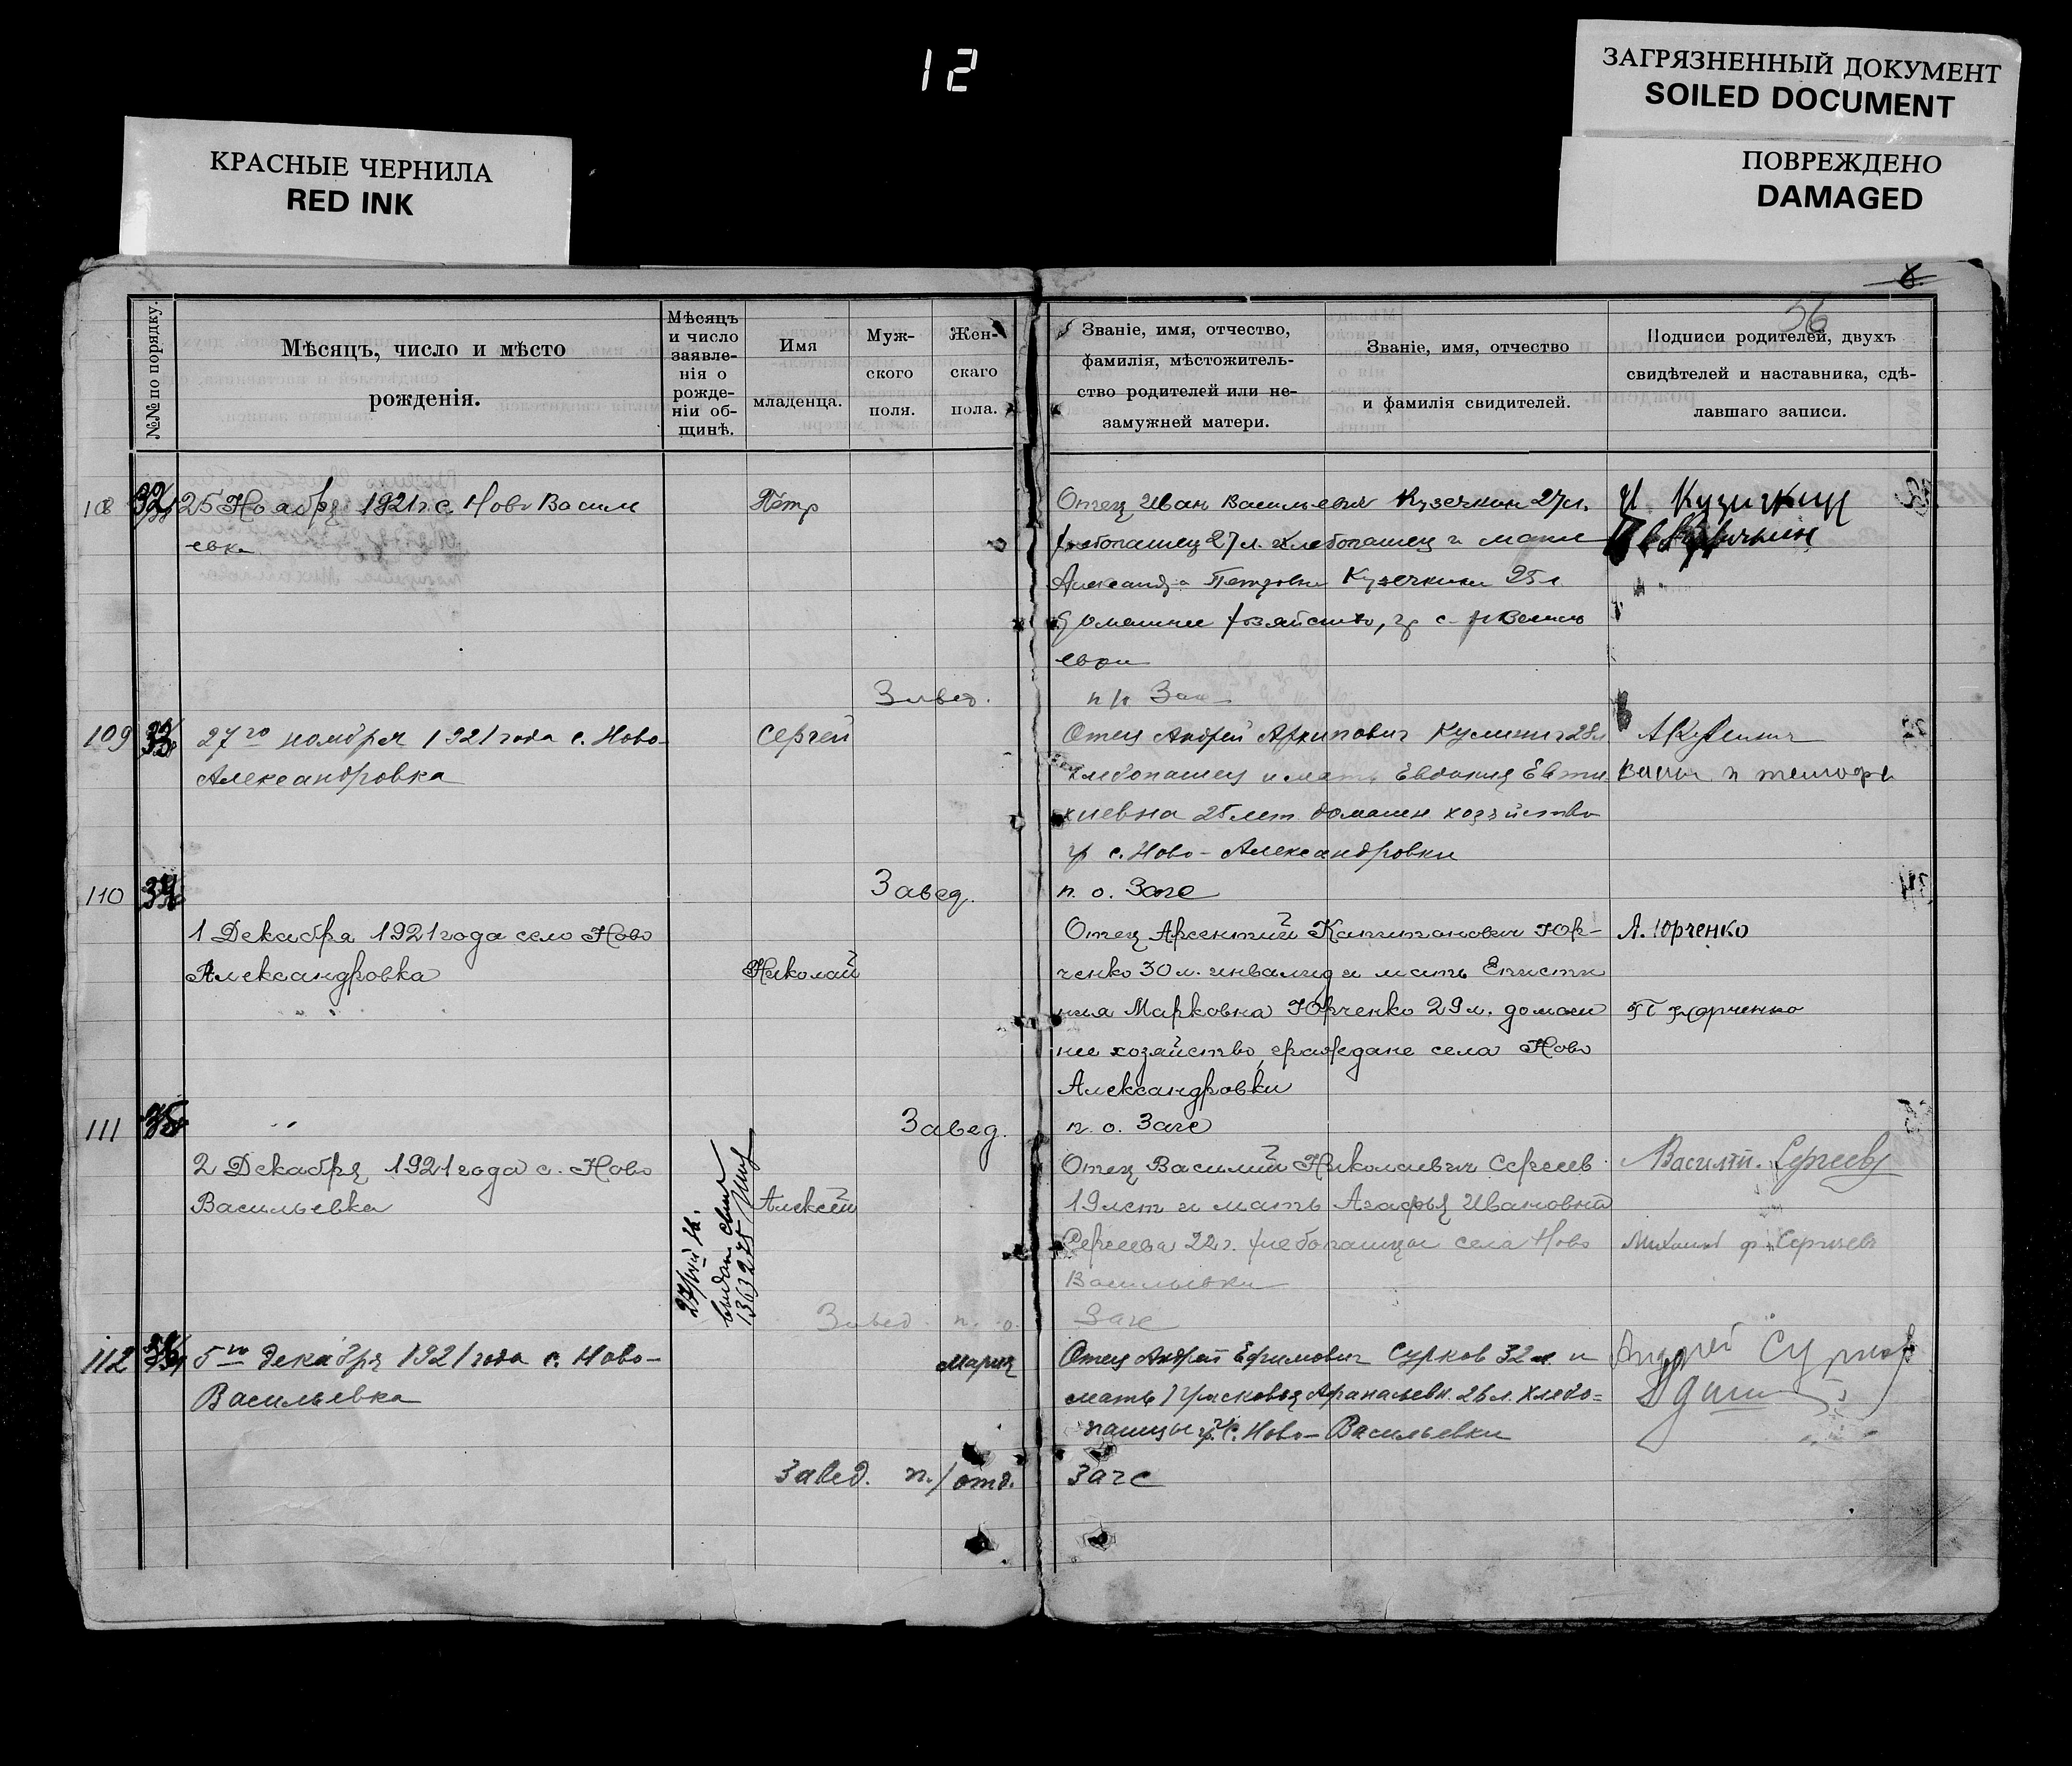 12
ЗАГРЯЗНЕННЫЙ ДОКУМЕНТ
SOILED DOCUMENT
ПОВРЕЖДЕНО
DAMAGED
КРАСНЫЕ ЧЕРНИЛА
RED INK
56
№№ по порядку.
Мѣсяцъ, число и мѣсто
рожденія.
Мѣсяцъ
и число
заявле-
нія о
рожде-
ніи об-
щинѣ.
Имя
младенца.
Муж-
ского
поля.
Жен-
скаго
пола.
Званіе, имя, отчество,
фамилія, мѣстожитель-
ство родителей или не-
замужней матери.
Званіе, имя, отчество
и фамилія свидѣтелей.
Подписи родителей, двухъ
свидѣтелей и наставника, сдѣ-
лавшаго записи.
108 32 25 Ноября 1921 г. с. Ново Василь
евка
Пётр
Отец Иван Васильевич Кузечкин 27 л.
хлебопашец 27 л. хлебопашец и мать
Александра Петровна Кузечкина 25 л
домашнее хозяйство, гр с. Н Василь
евки
Завед.
п/о Заг
109 33 27го ноября 1921 года с. Ново-
Александровка
Сергей
Отец Андрей Архипович Кулинич 28 л
хлебопашец и мать Евдокия Евти
хиевна 25 лет домашн хозяйство
гр с. Ново-Александровки
110 34
Завед.
п. о. Загс
1 Декабря 1921 года село Ново
Александровка
Николай
Отец Арсентий Капитонович Юр-
ченко 30 л. инвалид и мать
Марковна Юрченко 29 л. домаш
нее хозяйство, граждане села Ново
Александровки
А. Юрченко
111 35
Завед.
п. о. Загс
2 Декабря 1921 года с. Ново
Васильевка
Алексей
Отец Василий Николаевич Сергеев
19 лет и мать Агафья Ивановна
Сергеева 22 г. хлебопашцы села Ново
Васильевки
Василий. Сергеев
Михаил ф Сергиевъ
Завед. п. о.
Загс
112 5го декабря 1921 года с. Ново-
Васильевка
Мария
Отец Андрей Ефимович Сурков 32 л. и
мать Прасковья Афанасьевн. 26 л. хлебо=
пашцы гр. с. Ново-Васильевки
Андрей Сурков
Завед. п./отд.
Загс